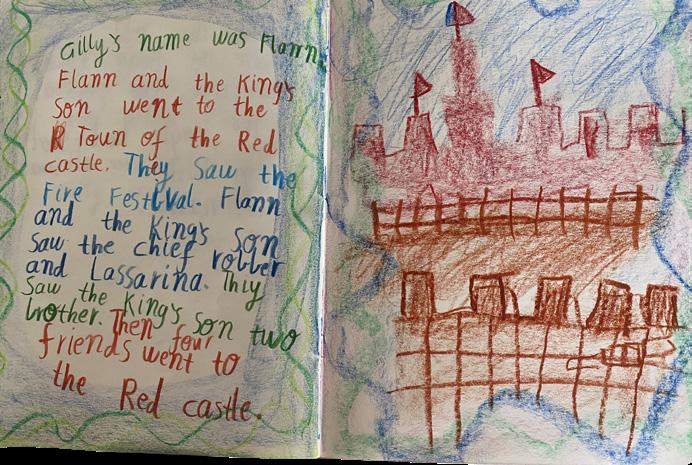 Gilly's name was Flann.
Flann and the King's
son went to the
Town of the Red
castle. They saw the
Fire Festival. Flann
and the King's son
saw the chief robber
and Lassarina. They
saw the King's son two
brother. Then four
friends went to
the Red castle.